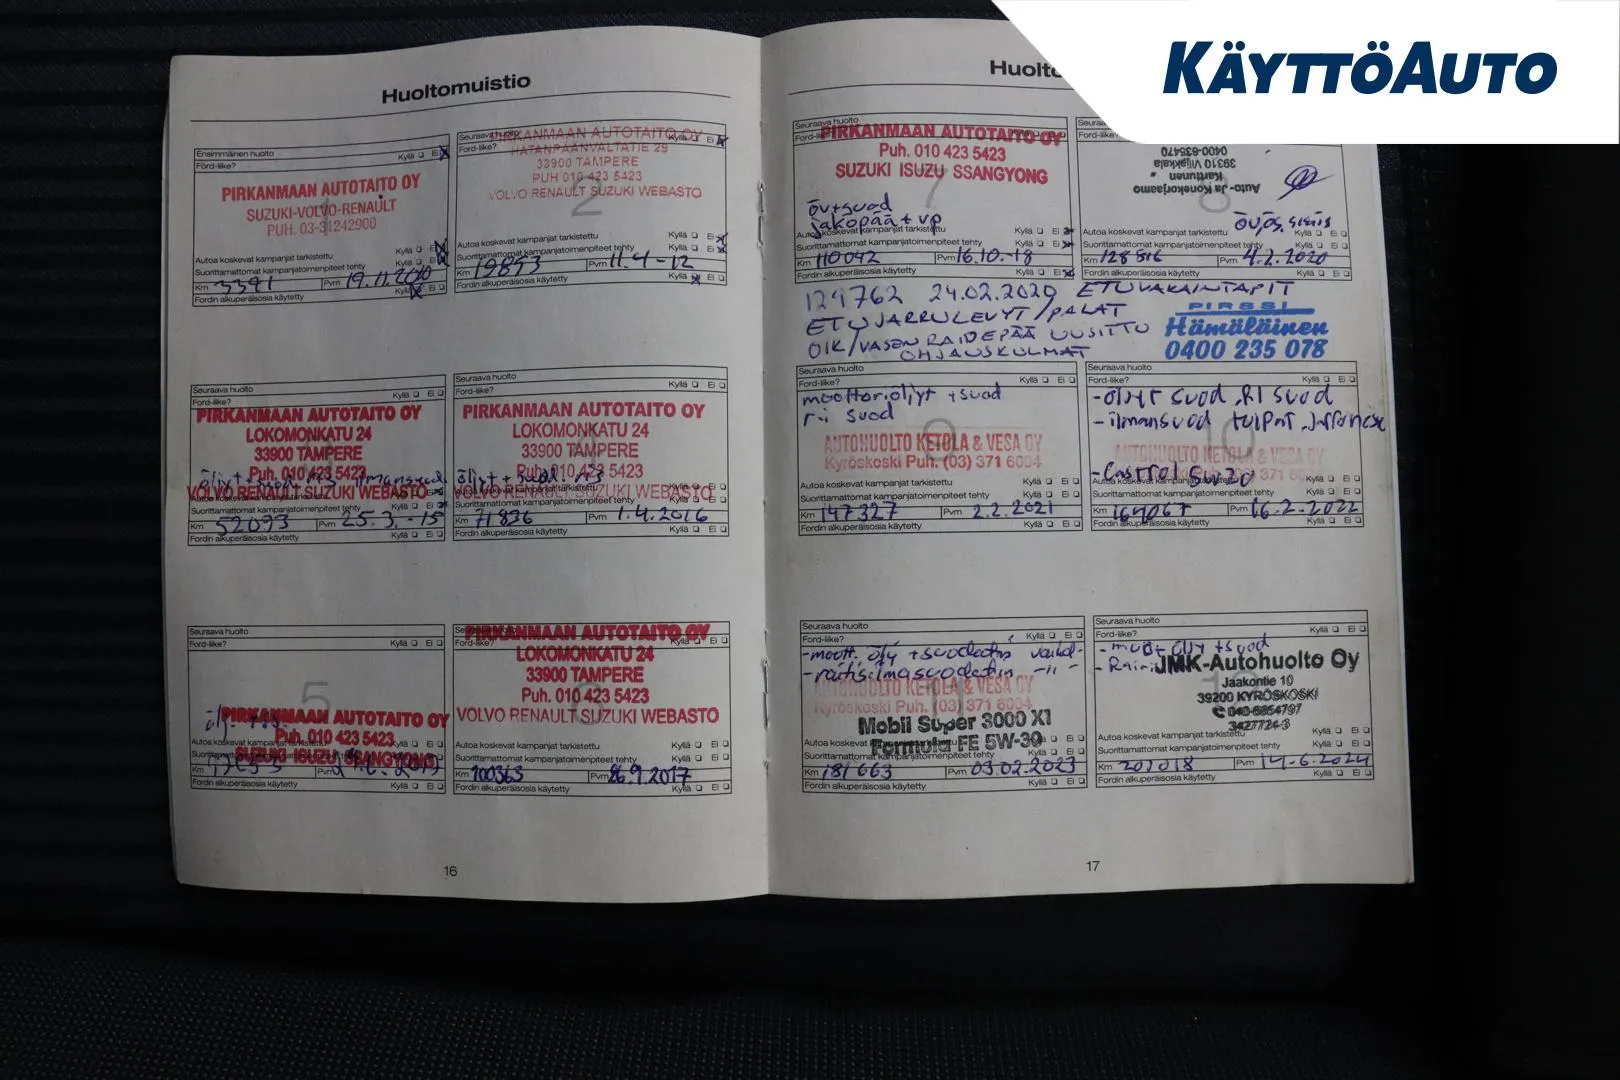 KÄYTTÖAUTO
Huoltomuistio
Ensimmäinen huolto
Ford-liike? Kyllä Ei
PIRKANMAAN AUTOTAITO OY
SUZUKI-VOLVO-RENAULT
PUH. 03-31242900
1
Autoa koskevat kampanjat tarkistettu Kyllä Ei
Suorittamattomat kampanjatoimenpiteet tehty Kyllä Ei
Km 3391 Pvm 19.11.2010
Fordin alkuperäisosia käytetty Kyllä Ei
Seuraava huolto
Ford-liike? Kyllä Ei
PIRKANMAAN AUTOTAITO OY
HATANPÄÄNVALTATIE 29
33900 TAMPERE
PUH 010 423 5423
VOLVO RENAULT SUZUKI WEBASTO
2
Autoa koskevat kampanjat tarkistettu Kyllä Ei
Suorittamattomat kampanjatoimenpiteet tehty Kyllä Ei
Km 19893 Pvm 11.4-12
Fordin alkuperäisosia käytetty Kyllä Ei
Seuraava huolto
Ford-liike? Kyllä Ei
PIRKANMAAN AUTOTAITO OY
LOKOMONKATU 24
33900 TAMPERE
Puh. 010 423 5423
öljyt + suod
VOLVO RENAULT SUZUKI WEBASTO
Suorittamattomat kampanjatoimenpiteet tehty
Km 52093 Pvm 25.3.-15
Fordin alkuperäisosia käytetty Kyllä Ei
Seuraava huolto
Ford-liike? Kyllä Ei
PIRKANMAAN AUTOTAITO OY
LOKOMONKATU 24
33900 TAMPERE
Puh. 010 423 5423
öljyt + suod.
VOLVO RENAULT SUZUKI WEBASTO
4
Autoa koskevat kampanjat tarkistettu Kyllä Ei
Suorittamattomat kampanjatoimenpiteet tehty Kyllä Ei
Km 71836 Pvm 1.4.2016
Fordin alkuperäisosia käytetty Kyllä Ei
Seuraava huolto
Ford-liike? Kyllä Ei
5
PIRKANMAAN AUTOTAITO OY
Puh. 010 423 5423
SUZUKI ISUZU SSANGYONG
Autoa koskevat kampanjat tarkistettu Kyllä Ei
Km Pvm
Fordin alkuperäisosia käytetty Kyllä Ei
PIRKANMAAN AUTOTAITO OY
Ford-liike? Kyllä Ei
LOKOMONKATU 24
33900 TAMPERE
Puh. 010 423 5423
VOLVO RENAULT SUZUKI WEBASTO
Autoa koskevat kampanjat tarkistettu Kyllä Ei
Suorittamattomat kampanjatoimenpiteet tehty Kyllä Ei
Km 100363 Pvm 26.9.2017
Fordin alkuperäisosia käytetty Kyllä Ei
16
Seuraava huolto
Ford-liike? Kyllä Ei
PIRKANMAAN AUTOTAITO OY
Puh. 010 423 5423
SUZUKI ISUZU SSANGYONG
7
öv+suod
jakopää + vp
Autoa koskevat kampanjat tarkistettu Kyllä Ei
Suorittamattomat kampanjatoimenpiteet tehty Kyllä Ei
Km 110042 Pvm 16.10.-18
Fordin alkuperäisosia käytetty Kyllä Ei
Ford-liike?
Auto- Ja Konekorjaamo
Karttunen
39310 Viljakkala
0400-635470
8
öv, ös, siniis
Autoa koskevat kampanjat tarkistettu Kyllä Ei
Suorittamattomat kampanjatoimenpiteet tehty Kyllä Ei
Km 128816 Pvm 4.2.2020
Fordin alkuperäisosia käytetty Kyllä Ei
129762 24.02.2020 ETUVAKAINTAPIT
ETUJARRULEVYT/PALAT
OIK/VASEN RAIDEPÄÄ UUSITTU
OHJAUSKULMAT
PIRSSI
Hämäläinen
0400 235 078
Seuraava huolto
Ford-liike? Kyllä Ei
moottoriöljyt + suod
r-i suod
9
AUTOHUOLTO KETOLA & VESA OY
Kyröskoski Puh. (03) 371 6004
Autoa koskevat kampanjat tarkistettu Kyllä Ei
Suorittamattomat kampanjatoimenpiteet tehty Kyllä Ei
Km 147327 Pvm 2.2.2021
Fordin alkuperäisosia käytetty Kyllä Ei
Seuraava huolto
Ford-liike? Kyllä Ei
-öljyt suod, RI suod
-ilmansuod tulpat
10
AUTOHUOLTO KETOLA & VESA OY
-Castrol 5w20
Autoa koskevat kampanjat tarkistettu Kyllä Ei
Suorittamattomat kampanjatoimenpiteet tehty Kyllä Ei
Km 164067 Pvm 16.2-2022
Fordin alkuperäisosia käytetty Kyllä Ei
Seuraava huolto
Ford-liike? Kyllä Ei
-moott. öljy + suodatin vaihd.
-raitisilmasuodatin -"-
AUTOHUOLTO KETOLA & VESA OY
Kyröskoski Puh. (03) 371 6004
Mobil Super 3000 X1
Formula FE 5W-30
Autoa koskevat kampanjat tarkistettu Kyllä Ei
Suorittamattomat kampanjatoimenpiteet tehty Kyllä Ei
Km 181663 Pvm 03.02.2023
Fordin alkuperäisosia käytetty Kyllä Ei
Seuraava huolto
Ford-liike? Kyllä Ei
- moot öljy + suod
JMK-Autohuolto Oy
Jaakontie 10
39200 KYRÖSKOSKI
040-6854797
3427724-3
Autoa koskevat kampanjat tarkistettu Kyllä Ei
Suorittamattomat kampanjatoimenpiteet tehty Kyllä Ei
Km 201018 Pvm 14-6.2024
Fordin alkuperäisosia käytetty Kyllä Ei
17